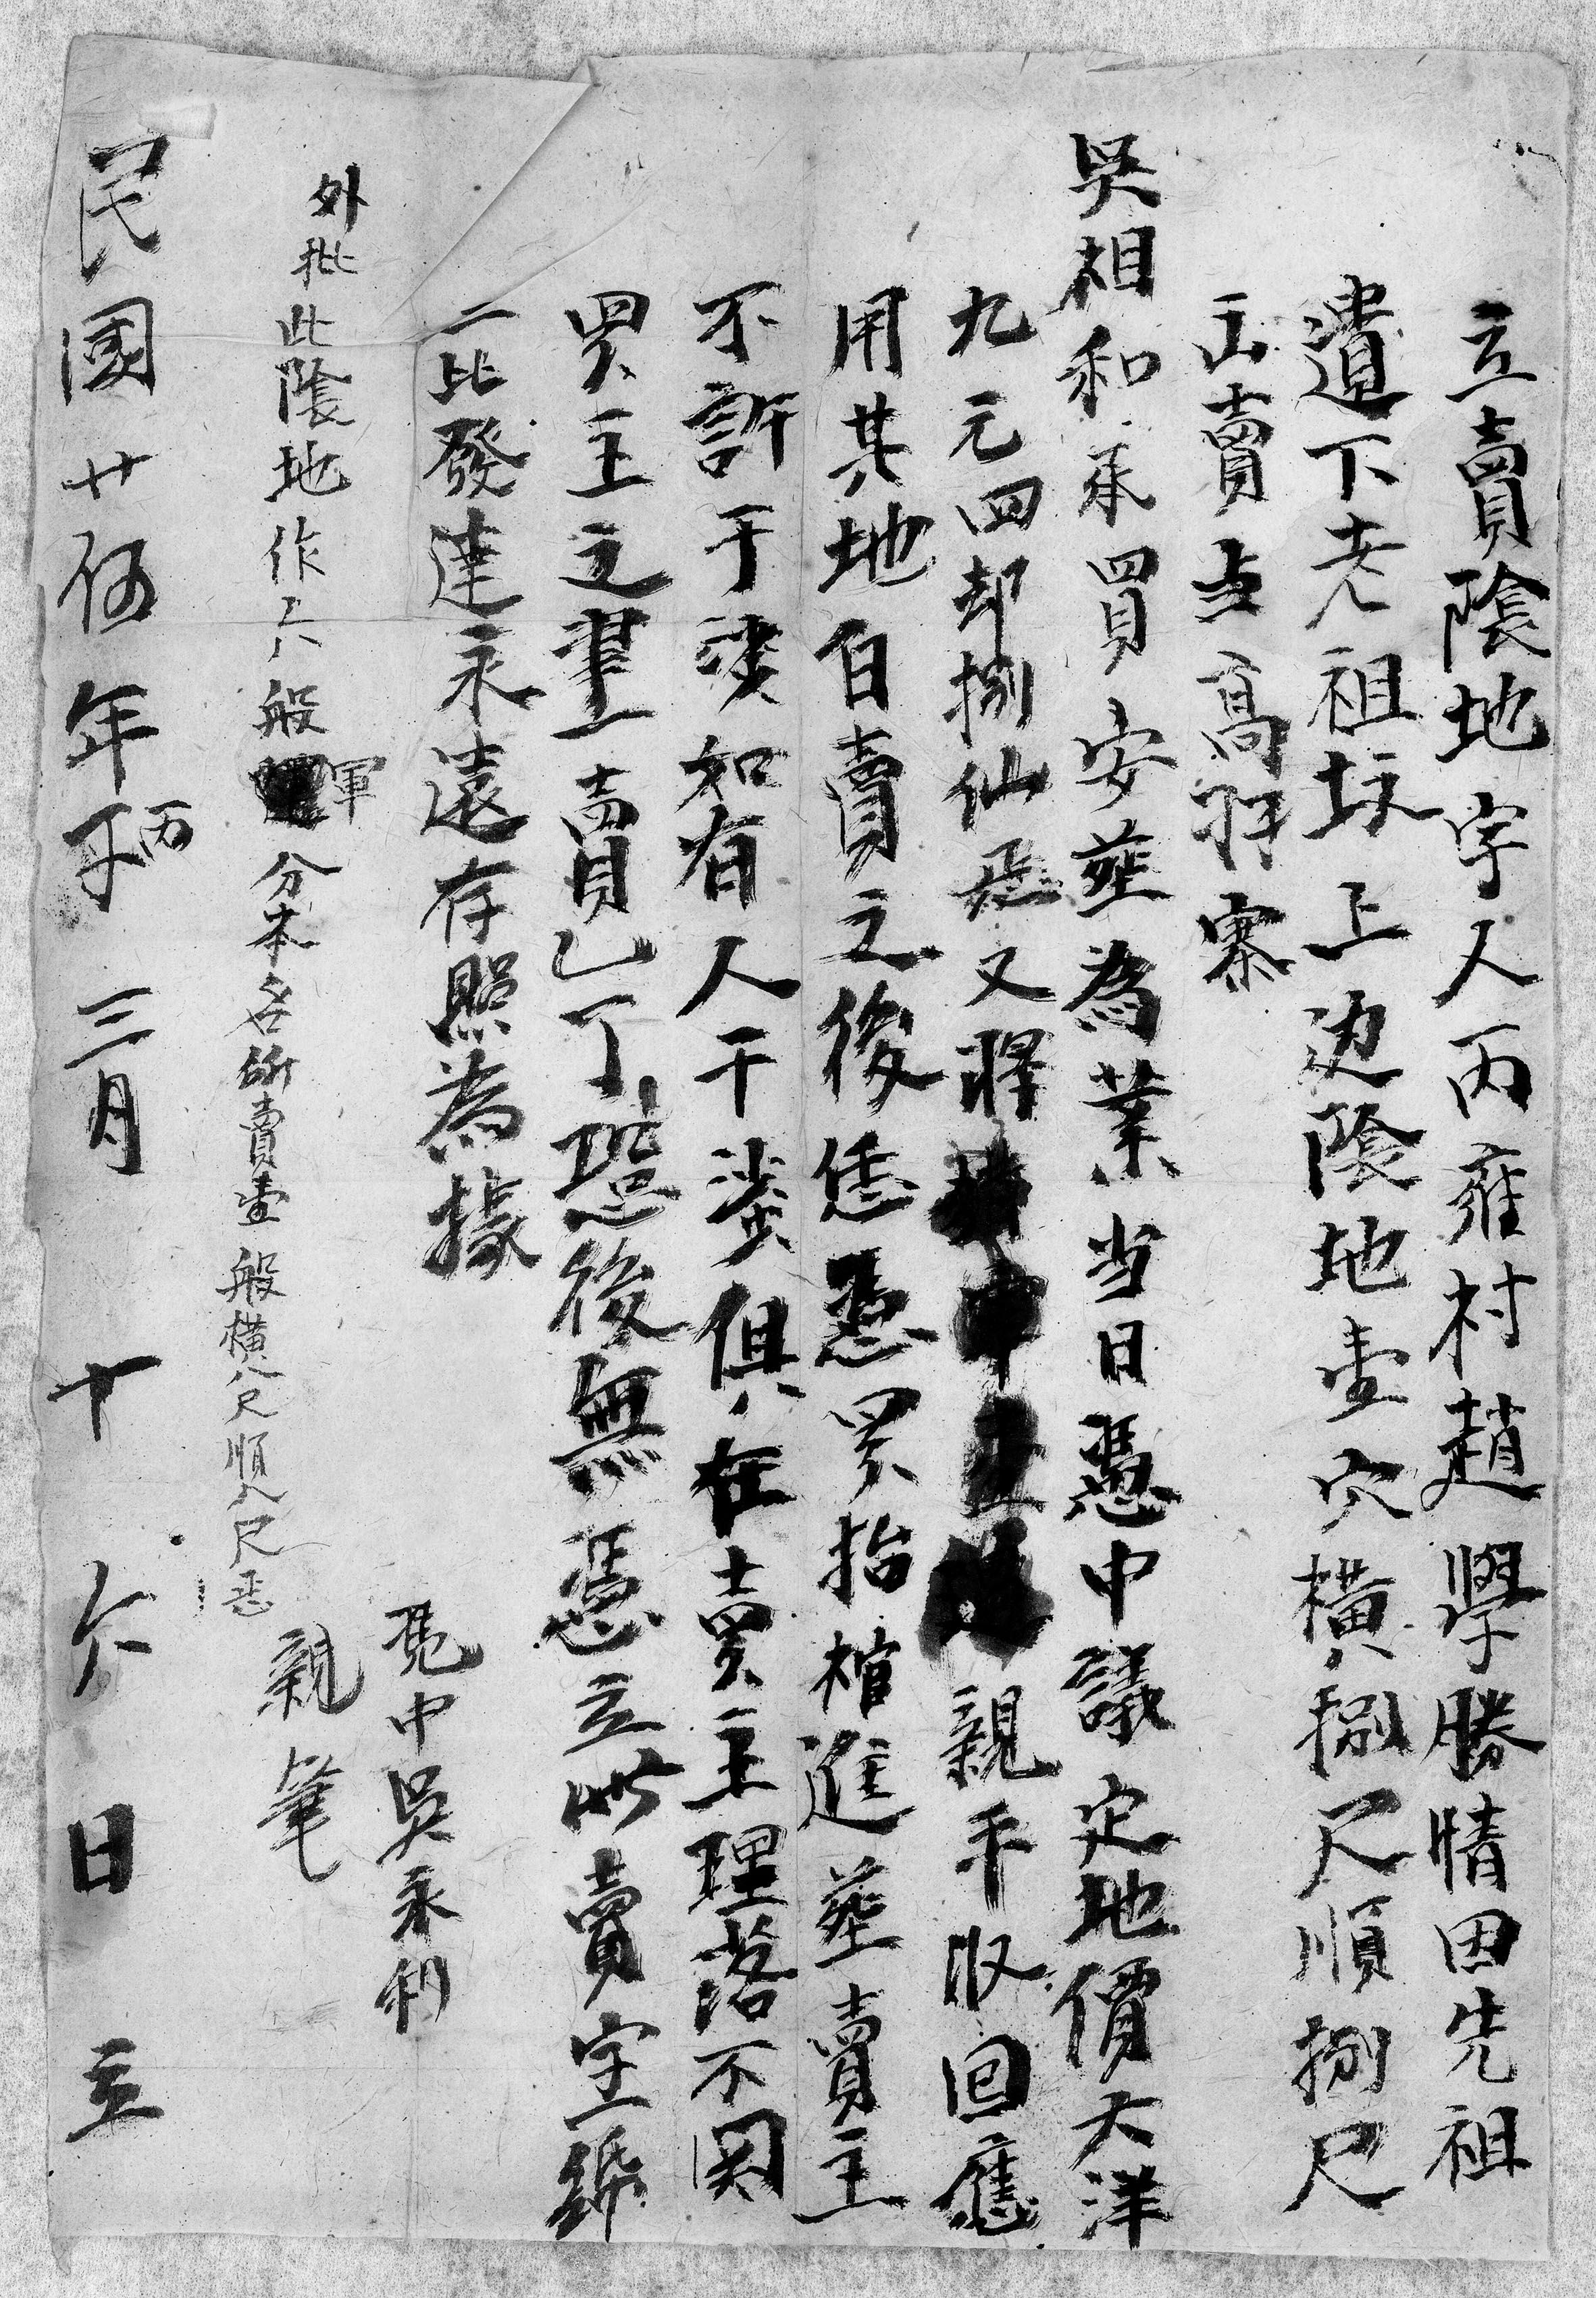 立賣陰地字人丙雍村趙學勝情因先祖
遺下老祖坟上边陰地壹穴橫捌尺順捌尺
出賣與高拜寨
吳祖和承買安葬為業当日憑中議定地價大洋
九元四却捌仙 又將 親手収回應
用其地自賣之後恁憑買抬棺進葬賣主
不許于涉如有人干涉俱在賣主理落不関
買主之事一賣乚了恐後無憑立此賣字絲
二比發達永遠存照為據
外批此陰地作六般軍分本名所賣壹般橫八尺順八尺
憑中吳永利
親筆
民國廿伍年丙子三月十六日立